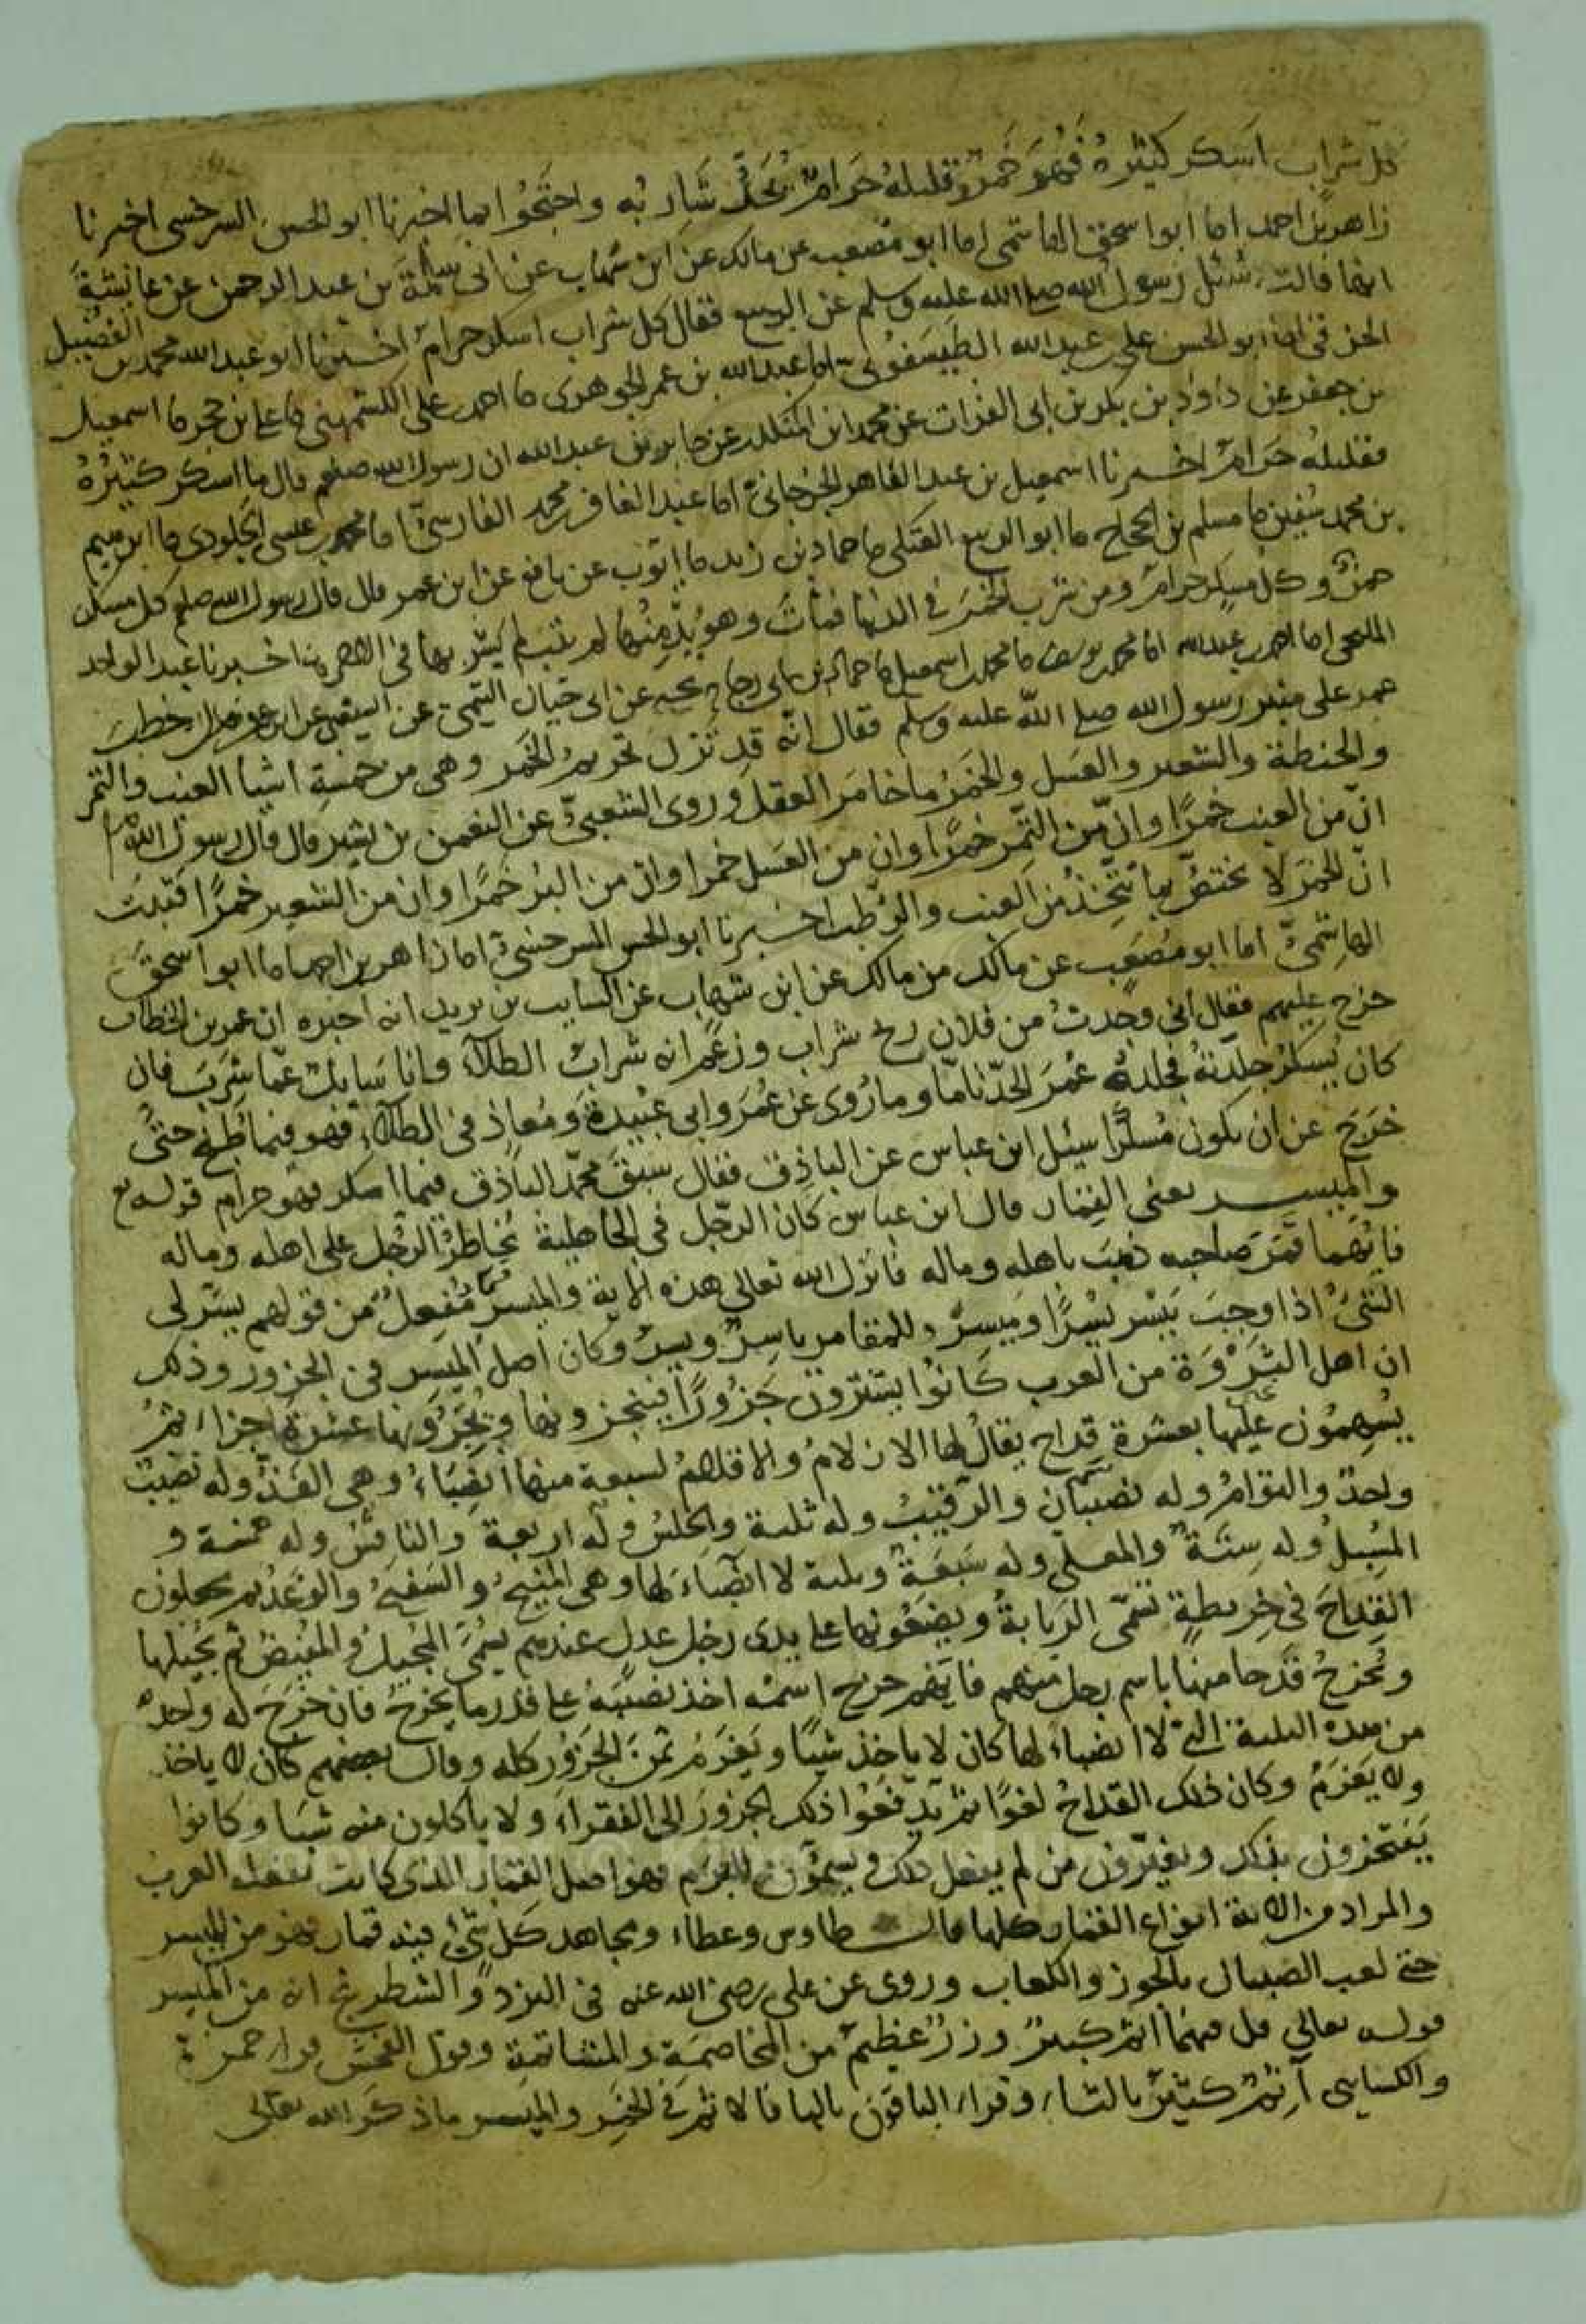 كل شراب اسكر كثيره فهو خمر قليله حرام يحد شاربه واحتجوا بما اخبرنا ابو الحسن السرخسي اخبرنا
زاهر بن احمد اما ابو اسحق الهاشمي اما ابو مصعب عن مالك عن ابن شهاب عن ابي سلمة بن عبد الرحمن عن عايشة
انها قالت سئل رسول الله صلى الله عليه وسلم عن البتع فقال كل شراب اسكر حرام اخبرنا ابو عبد الله محمد بن الفضيل
الخرقي اما ابو الحسن علي عبد الله الطيسفوني اما عبد الله بن عمر الجوهري ما احمد علي الكشمهيني ما علي بن حجر ما اسمعيل
بن جعفر عن داود بن بكر بن ابي الفرات عن محمد ابن المنكدر عن جابر بن عبد الله ان رسول الله صلعم قال ما اسكر كثيره
فقليله حرام اخبرنا اسمعيل بن عبد القاهر الجرجاني اما عبد الغافر محمد الفارسي اما محمد عيسى الجلودي ما ابرهيم
بن محمد سفين ما مسلم بن الحجاج ما ابو الربيع العتكي ما حماد بن زيد ما ايوب عن نافع عن ابن عمر قال قال رسول الله صلعم كل مسكر
خمر وكل مسكر حرام ومن شرب الخمر في الدنيا فمات وهو يدمنها لم يتب لم يشربها في الاخرة اخبرنا عبد الواحد
المليحي اما احمد عبد الله اما محمد يوسف ما محمد اسمعيل ما احمد بن ابي رجاء يحيى عن ابي حيان التيمي عن الشعبي عن ابن عمر قال خطب
عمر على منبر رسول الله صلى الله عليه وسلم فقال انه قد نزل تحريم الخمر وهي من خمسة اشيا العنب والتمر
والحنطة والشعير والعسل والخمر ما خامر العقل وروى الشعبي عن النعمن بن بشير قال قال رسول الله
ان من العنب خمرا وان من التمر خمرا وان من العسل خمرا وان من البر خمرا وان من الشعير خمرا فثبت
ان الخمر لا يختص بما يتخذ من العنب والرطب اخبرنا ابو الحسن السرخسي اما زاهر بن احمد اما ابو اسحق
الهاشمي اما ابو مصعب عن مالك من مالك عن ابن شهاب عن السايب بن يزيد انه اخبره ان عمر بن الخطاب
خرج عليهم فقال اني وجدت من فلان ريح شراب وزعم انه شراب الطلاء وانا سايل عما شرب فان
كان يسكر جلدته فجلده عمر الحد تاما وما روي عن عمر وابي عبيدة ومعاذ في الطلاء فهو فيما طبخ حتى
خرج عن ان يكون مسكرا سيئل ابن عباس عن الباذق فقال سبق محمد الباذق فيما اسكر فهو حرام قوله تع
والميسر يعني القمار قال ابن عباس كان الرجل في الجاهلية يخاطر الرجل على اهله وماله
فايهما قمر صاحبه ذهب باهله وماله فانزل الله تعالى هذه الاية والميسر مفعل من قولهم يسر لي
الشئ اذا وجب ييسر يسرا وميسرا وللمقامر ياسر ويسر وكان اصل الميسر في الجزور وذلك
ان اهل الثروة من العرب كانوا يشترون جزورا فينحرونها ويجزونها عشرة اجزاء ثم
يسهمون عليها بعشرة قداح يقال لها الازلام والاقلام لسبعة منها انصباء وهي الفذ وله نصيب
واحد والتوام وله نصيبان والرقيب وله ثلثة والحلس وله اربعة والنافس وله خمسة و
المسبل وله ستة والمعلى وله سبعة وثلثة لا انصباء لها وهي المنيح والسفيح والوغد ثم يجعلون
القداح في خريطة تسمى الربابة ويضعونها على يدي رجل عدل عندهم يسمى المجيل والمفيض ثم يجيلها
ويخرج قدحا منها باسم رجل منهم فايهم خرج اسمه اخذ نصيبه على قدر ما يخرج فان خرج له واحد
من هذه الثلثة التي لا انصباء لها كان لا ياخذ شيا ويغرم ثمن الجزور كله وقال بعضهم كان لا ياخذ
ولا يغرم وكان ذلك القداح لغوا ثم يدفعوا ذلك الجزور الى الفقراء ولا ياكلون منه شيا وكانوا
يفتخرون بذلك ويعيرون من لم يفعل ذلك ويسمونه البرم فهو اصل القمار الذي كانت تفعله العرب
والمراد من الاية انواع القمار كلها قال طاوس وعطاء ومجاهد كل شئ فيه قمار فهو من الميسر
حتى لعب الصبيان بالجوز والكعاب وروي عن علي رضي الله عنه في النرد والشطرنج انه من الميسر
قوله تعالى قل فيهما اثم كبير وزر عظيم من المخاصمة والمشاتمة وقول الفحش قراء حمزة
والكسايي اثم كثير بالثاء وقراء الباقون بالبا فالاثم في الخمر والميسر ما ذكر الله تعالى
Copyright © King Saud University